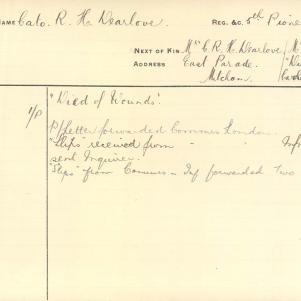 NAME Cato. R. H. Dearlove. REG. &C. 5th Pione
NEXT OF KIN Mrs C. R. H. Dearlove
ADDRESS East Parade.
"Died of Wounds".
P/Letter forwarded Commrs London.
"Slips" received from " Inf
sent Inquirer.
"Slips" from Commrs - Inf forwarded Two